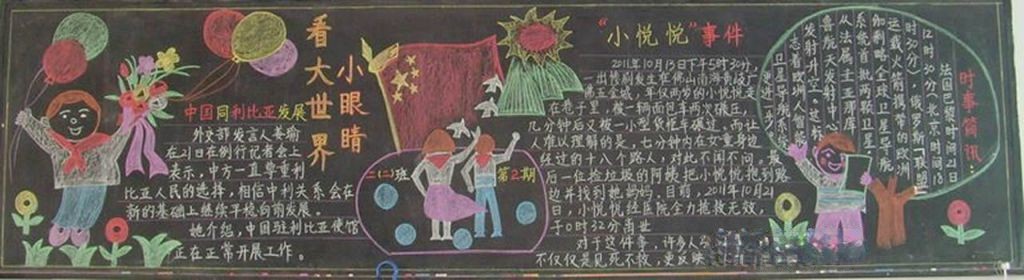 中国同利比亚发展
外交部发言人姜瑜
在21日在例行记者会上
表示，中方一直尊重利
比亚人民的选择，相信中利关系会在
新的基础上继续平稳向前发展。
她介绍，中国驻利比亚使馆
正在正常开展工作。
看大世界
小眼睛
二（二）班
第2期
“小悦悦”事件
2011年10月13日下午5时30分，
一出惨剧发生在佛山南海黄岐广
佛五金城，年仅两岁的小悦悦走
在巷子里，被一辆面包车两次碾压，
几分钟后又被一小型货柜车碾过。而让
人难以理解的是，七分钟内在女童身边
经过的十八个路人，对此不闻不问。最
后一位捡垃圾的阿姨把小悦悦抱到路
边并找到她妈妈。目前，2011年10月21
日，小悦悦经医院全力抢救无效，
于0时32分离世
对于这件事，许多人
不仅仅是见死不救，更反映
时事简讯：
法国巴黎时间21日
12时30分（北京时间18
时30分），俄罗斯“联盟”
运载火箭携带的欧洲
伽利略全球卫星导航
系统首批两颗卫星，
从法属圭亚那库
鲁航天发射中心
发射升空。这标
志着欧洲人
卫星导航系